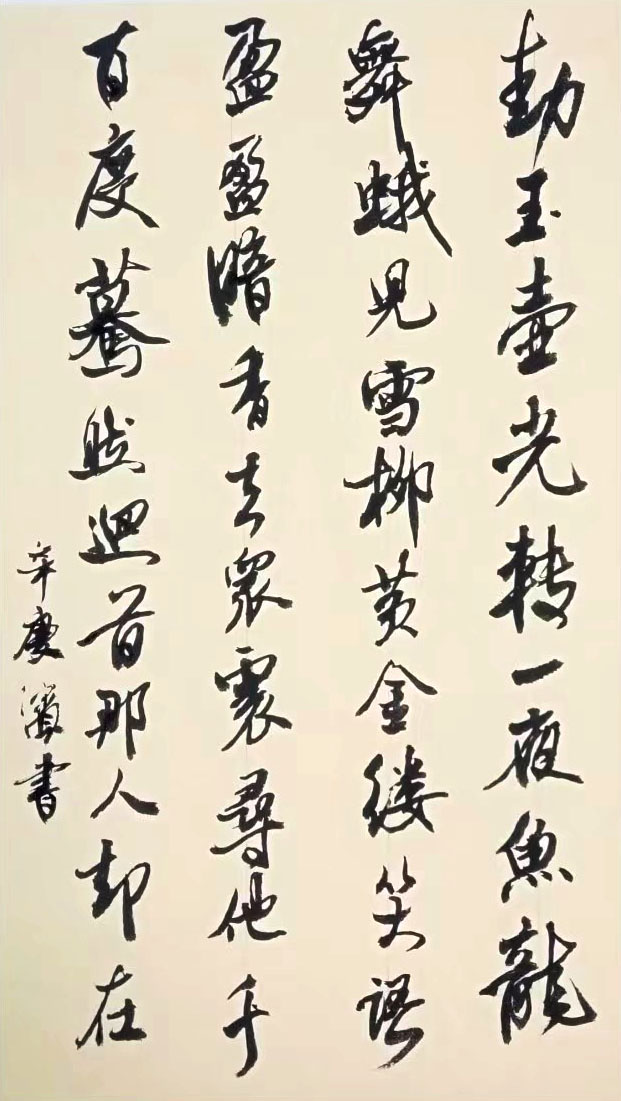 動玉壺光轉一夜魚龍
舞蛾兒雪柳黄金縷笑語
盈盈暗香去眾裏尋他千
百度驀然迴首那人却在
辛慶書